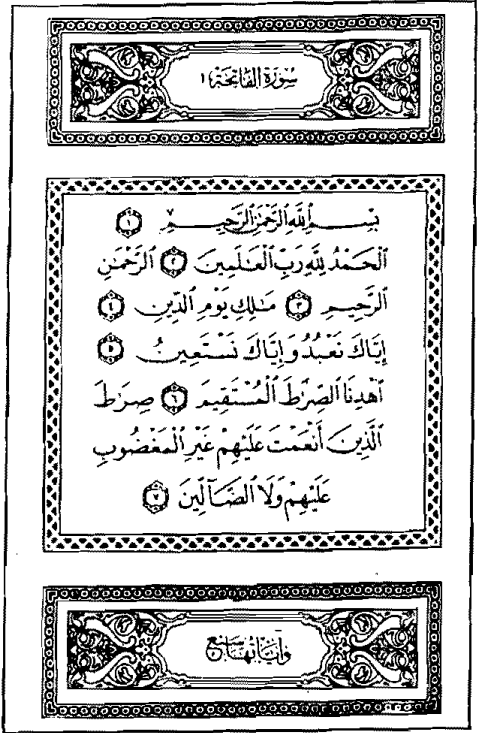 سُورَةُ الفَاتِحَةِ ١
بِسۡمِ ٱللَّهِ ٱلرَّحۡمَٰنِ ٱلرَّحِيمِ ١
ٱلۡحَمۡدُ لِلَّهِ رَبِّ ٱلۡعَٰلَمِينَ ٢ ٱلرَّحۡمَٰنِ
ٱلرَّحِيمِ ٣ مَٰلِكِ يَوۡمِ ٱلدِّينِ ٤
إِيَّاكَ نَعۡبُدُ وَإِيَّاكَ نَسۡتَعِينُ ٥
ٱهۡدِنَا ٱلصِّرَٰطَ ٱلۡمُسۡتَقِيمَ ٦ صِرَٰطَ
ٱلَّذِينَ أَنۡعَمۡتَ عَلَيۡهِمۡ غَيۡرِ ٱلۡمَغۡضُوبِ
عَلَيۡهِمۡ وَلَا ٱلضَّآلِّينَ ٧
وَآيَاتُهَا سَبْع